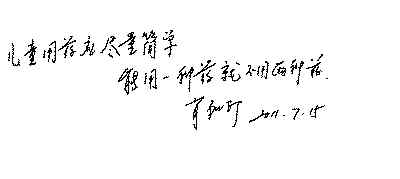 儿童用药应尽量简单
能用一种药就不用两种药.
2011.7.15